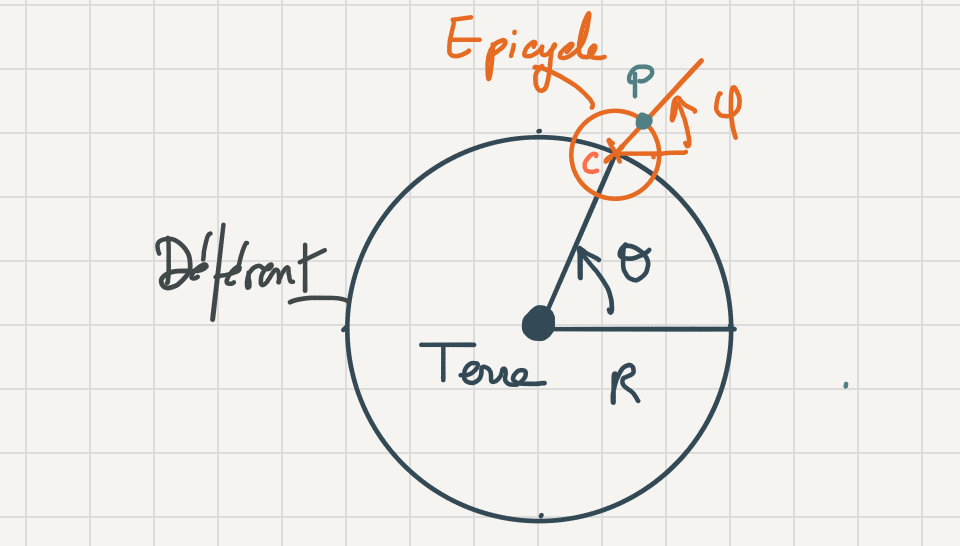 Epicycle
P
φ
C
Déférent
θ
Terre
R